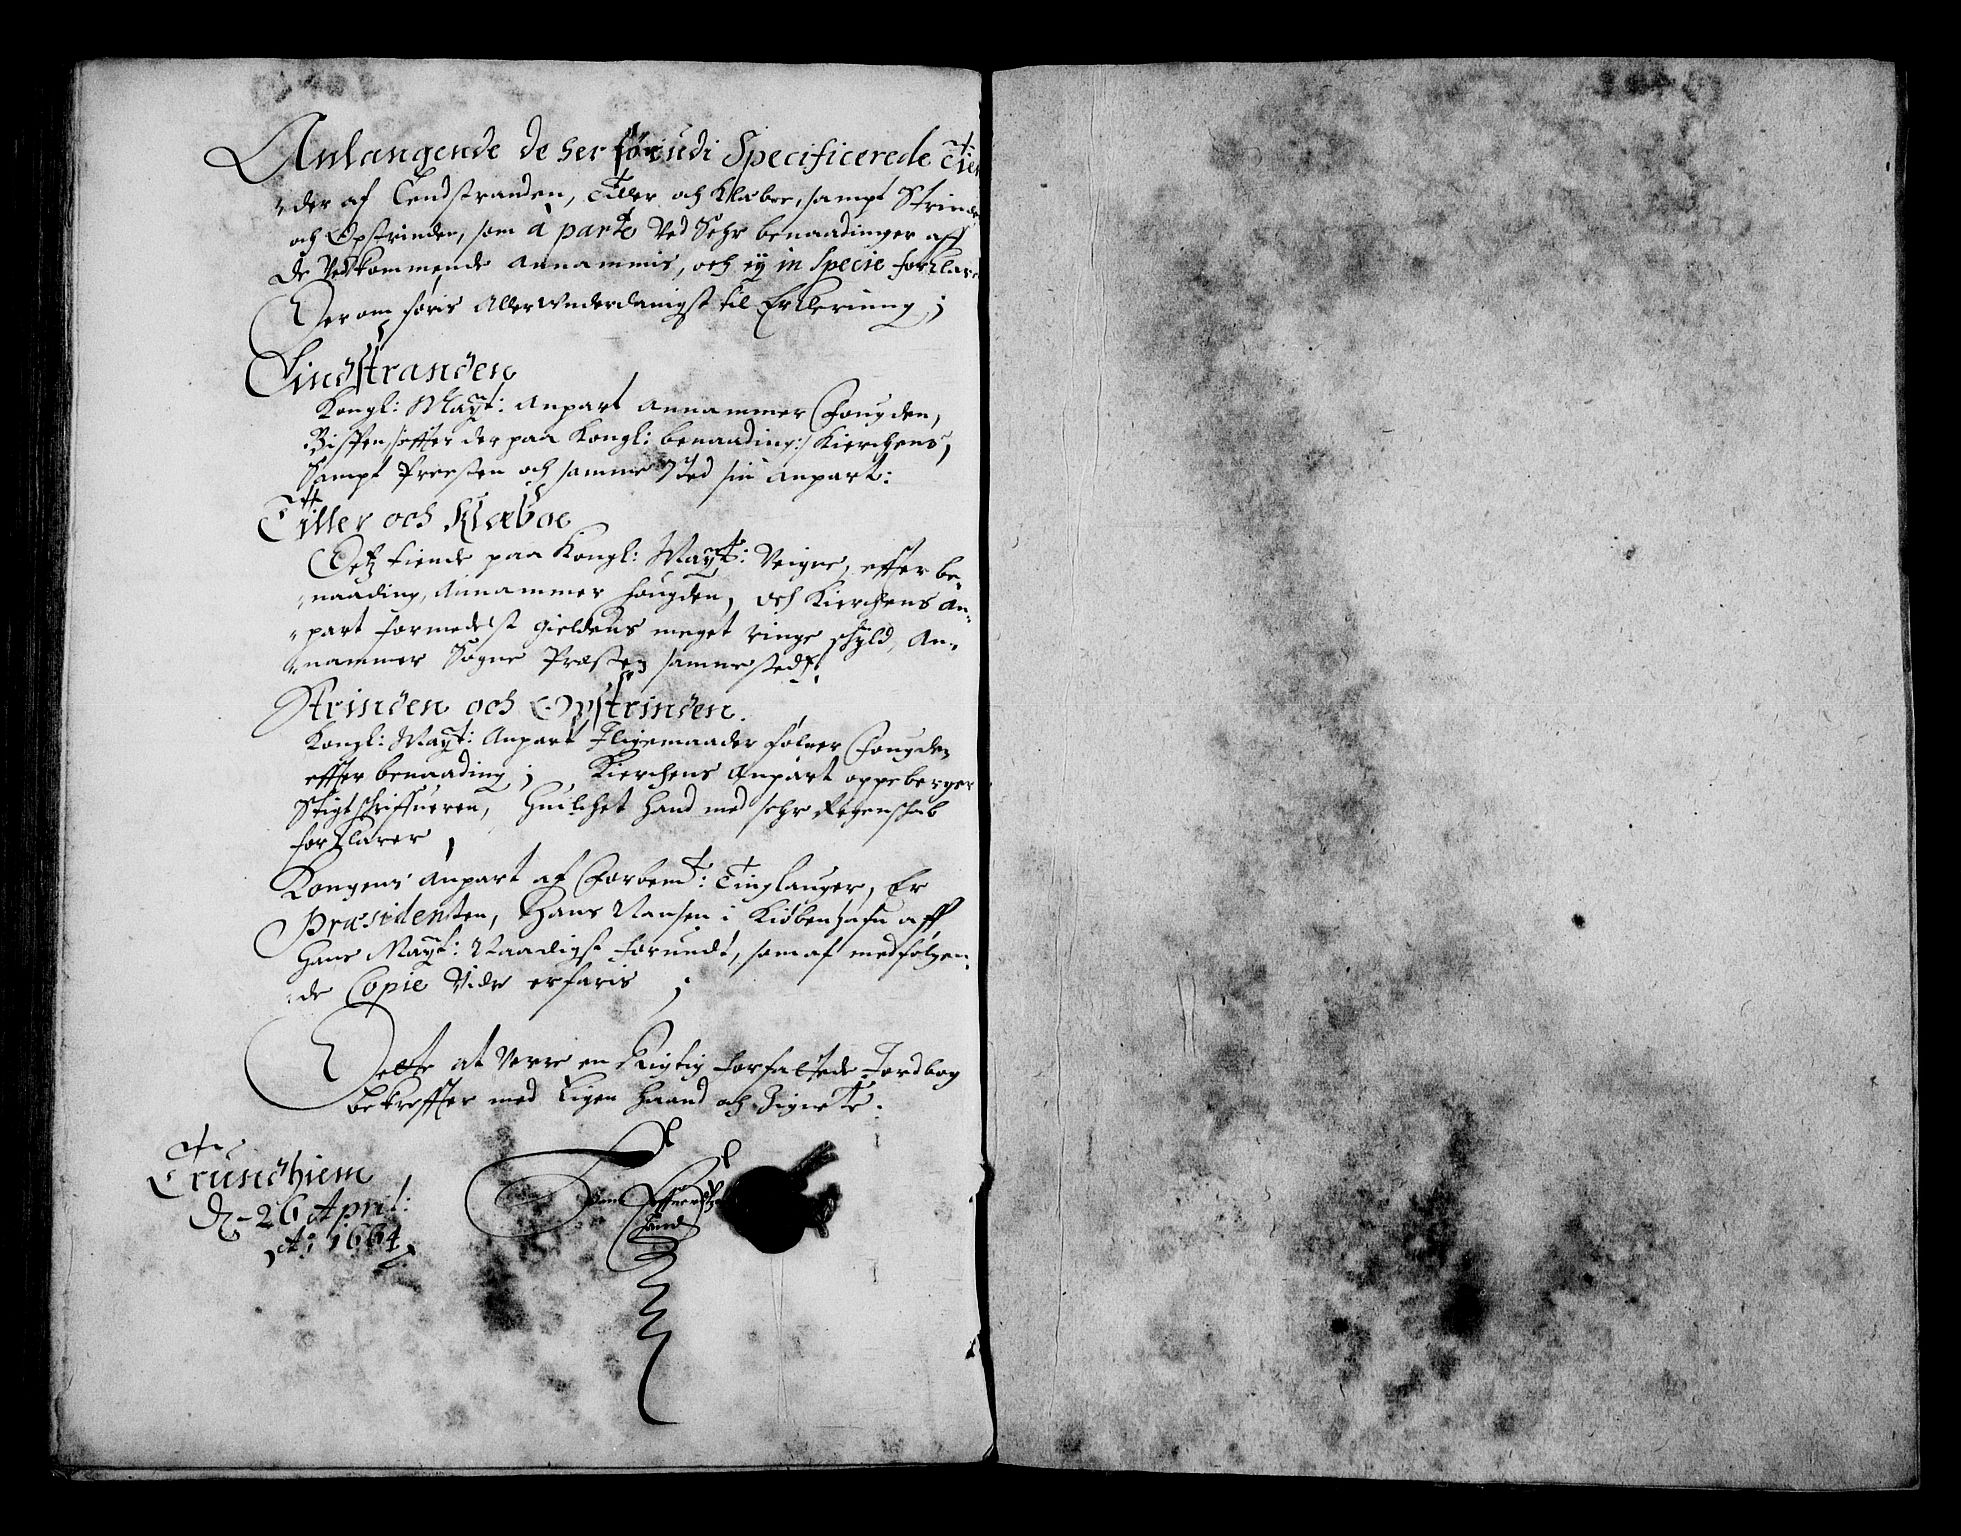 Anlangende de her förindi Specificerede Tien
-der af Lendstranden, Tiller och Klæboe, sampt Strinde
och Opstrinden, som à parte Ved Sehr benaadinger aff
de Vedkommende Annammis, och ey in Specie forklaris
Derom föris Allerunderdanigst til Erklering;
Lindstranden
Kongl: Mayt: Anpart Annammer Fougden,
Bispen /: effter der paa Kongl: benaading :/ Kierchens,
Sampt Presten och samme Sted sin Anpart:
Tiller och Klæboe
Dets tiende paa Kongl: Mayt: Veigne, effter be-
-naading, Annammer fougden, och Kierchens An-
-part formedelst gieldens meget ringe schyld, An-
-nammer Sogne Præsten sammestedz:
Strinden och Opstrinden.
Kongl: Mayt: Anpart Jligemaader følger Fougden
effter benaading; Kierchens Anpart oppeberger
Stigtschriffueren, huilchet hand med sehr Regenschab
forklarer,
Kongens Anpart af Forbemt: Tinglauger, Er
Præsidenten, Hans Nansen i Kiøbenhafn aff
Hans Mayt: Naadigst forundt, som af medfølgen-
-de Copie Vider erfaris;
Dette at Verre en Rigtig forfattede Jordbog
bekreffter med Eigen Haand och Zignete.
Trundhiem
D- 26 April:
Ao 1664
Hand